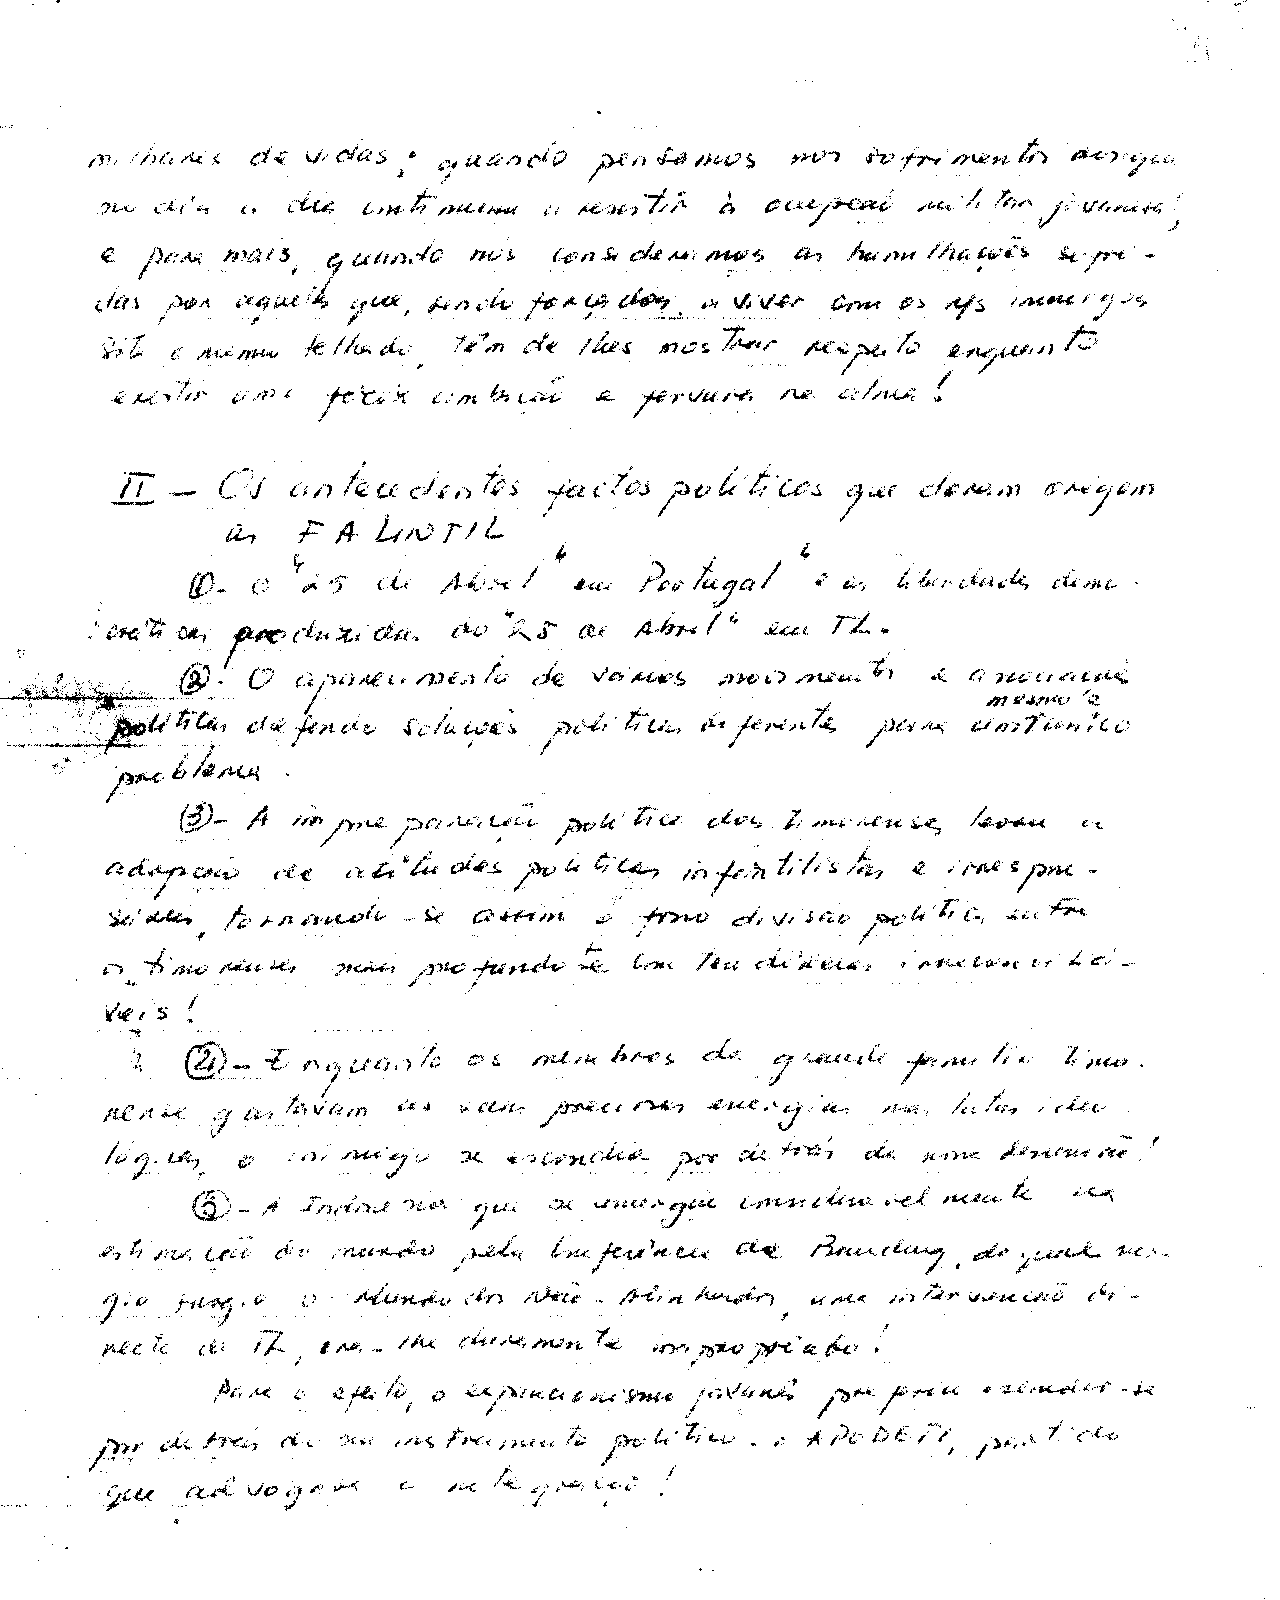 milhares de vidas; quando pensamos nos sofrimentos daqueles
no dia a dia continuam a resistir à ocupação militar javanesa,
e para mais, quando nós consideramos as humilhações sofri-
das por aqueles que, sendo forçados a viver com os inimigos
sob o mesmo telhado, têm de lhes mostrar respeito enquanto
existir uma ambição e fervura na alma!
II - Os antecedentes factos políticos que deram origem
as FALINTIL
①- O "25 de Abril" em Portugal" e as liberdades demo-
cráticas produzidas do "25 de Abril" em TL.
②- O aparecimento de vários movimentos e associações
mesmo e
políticas defendo soluções políticas diferentes para um único
problema.
③- A impreparação política dos timorenses levou a
adopção de atitudes políticas infantilistas e irrespon-
sáveis, tornando-se assim o divisão política entre
os timorenses mais profundo e com tendências irreconciliá-
veis!
④- Enquanto os membros da grande família timo-
rense gastavam as suas preciosas energias nas lutas ideo
lógicas, o inimigo se escondia por detrás de uma
⑤- A Indonésia que se emergiu consideravelmente na
estimação do mundo pela Conferência de Bandung, do qual
surgiu o Mundo dos Não-Alinhados, uma intervenção di-
recta a TL, era-lhe duramente impropriado!
Para o efeito, o expancionismo javanês preferiu esconder-se
por detrás do seu instrumento político - a APODETI, partido
que advogava a integração!